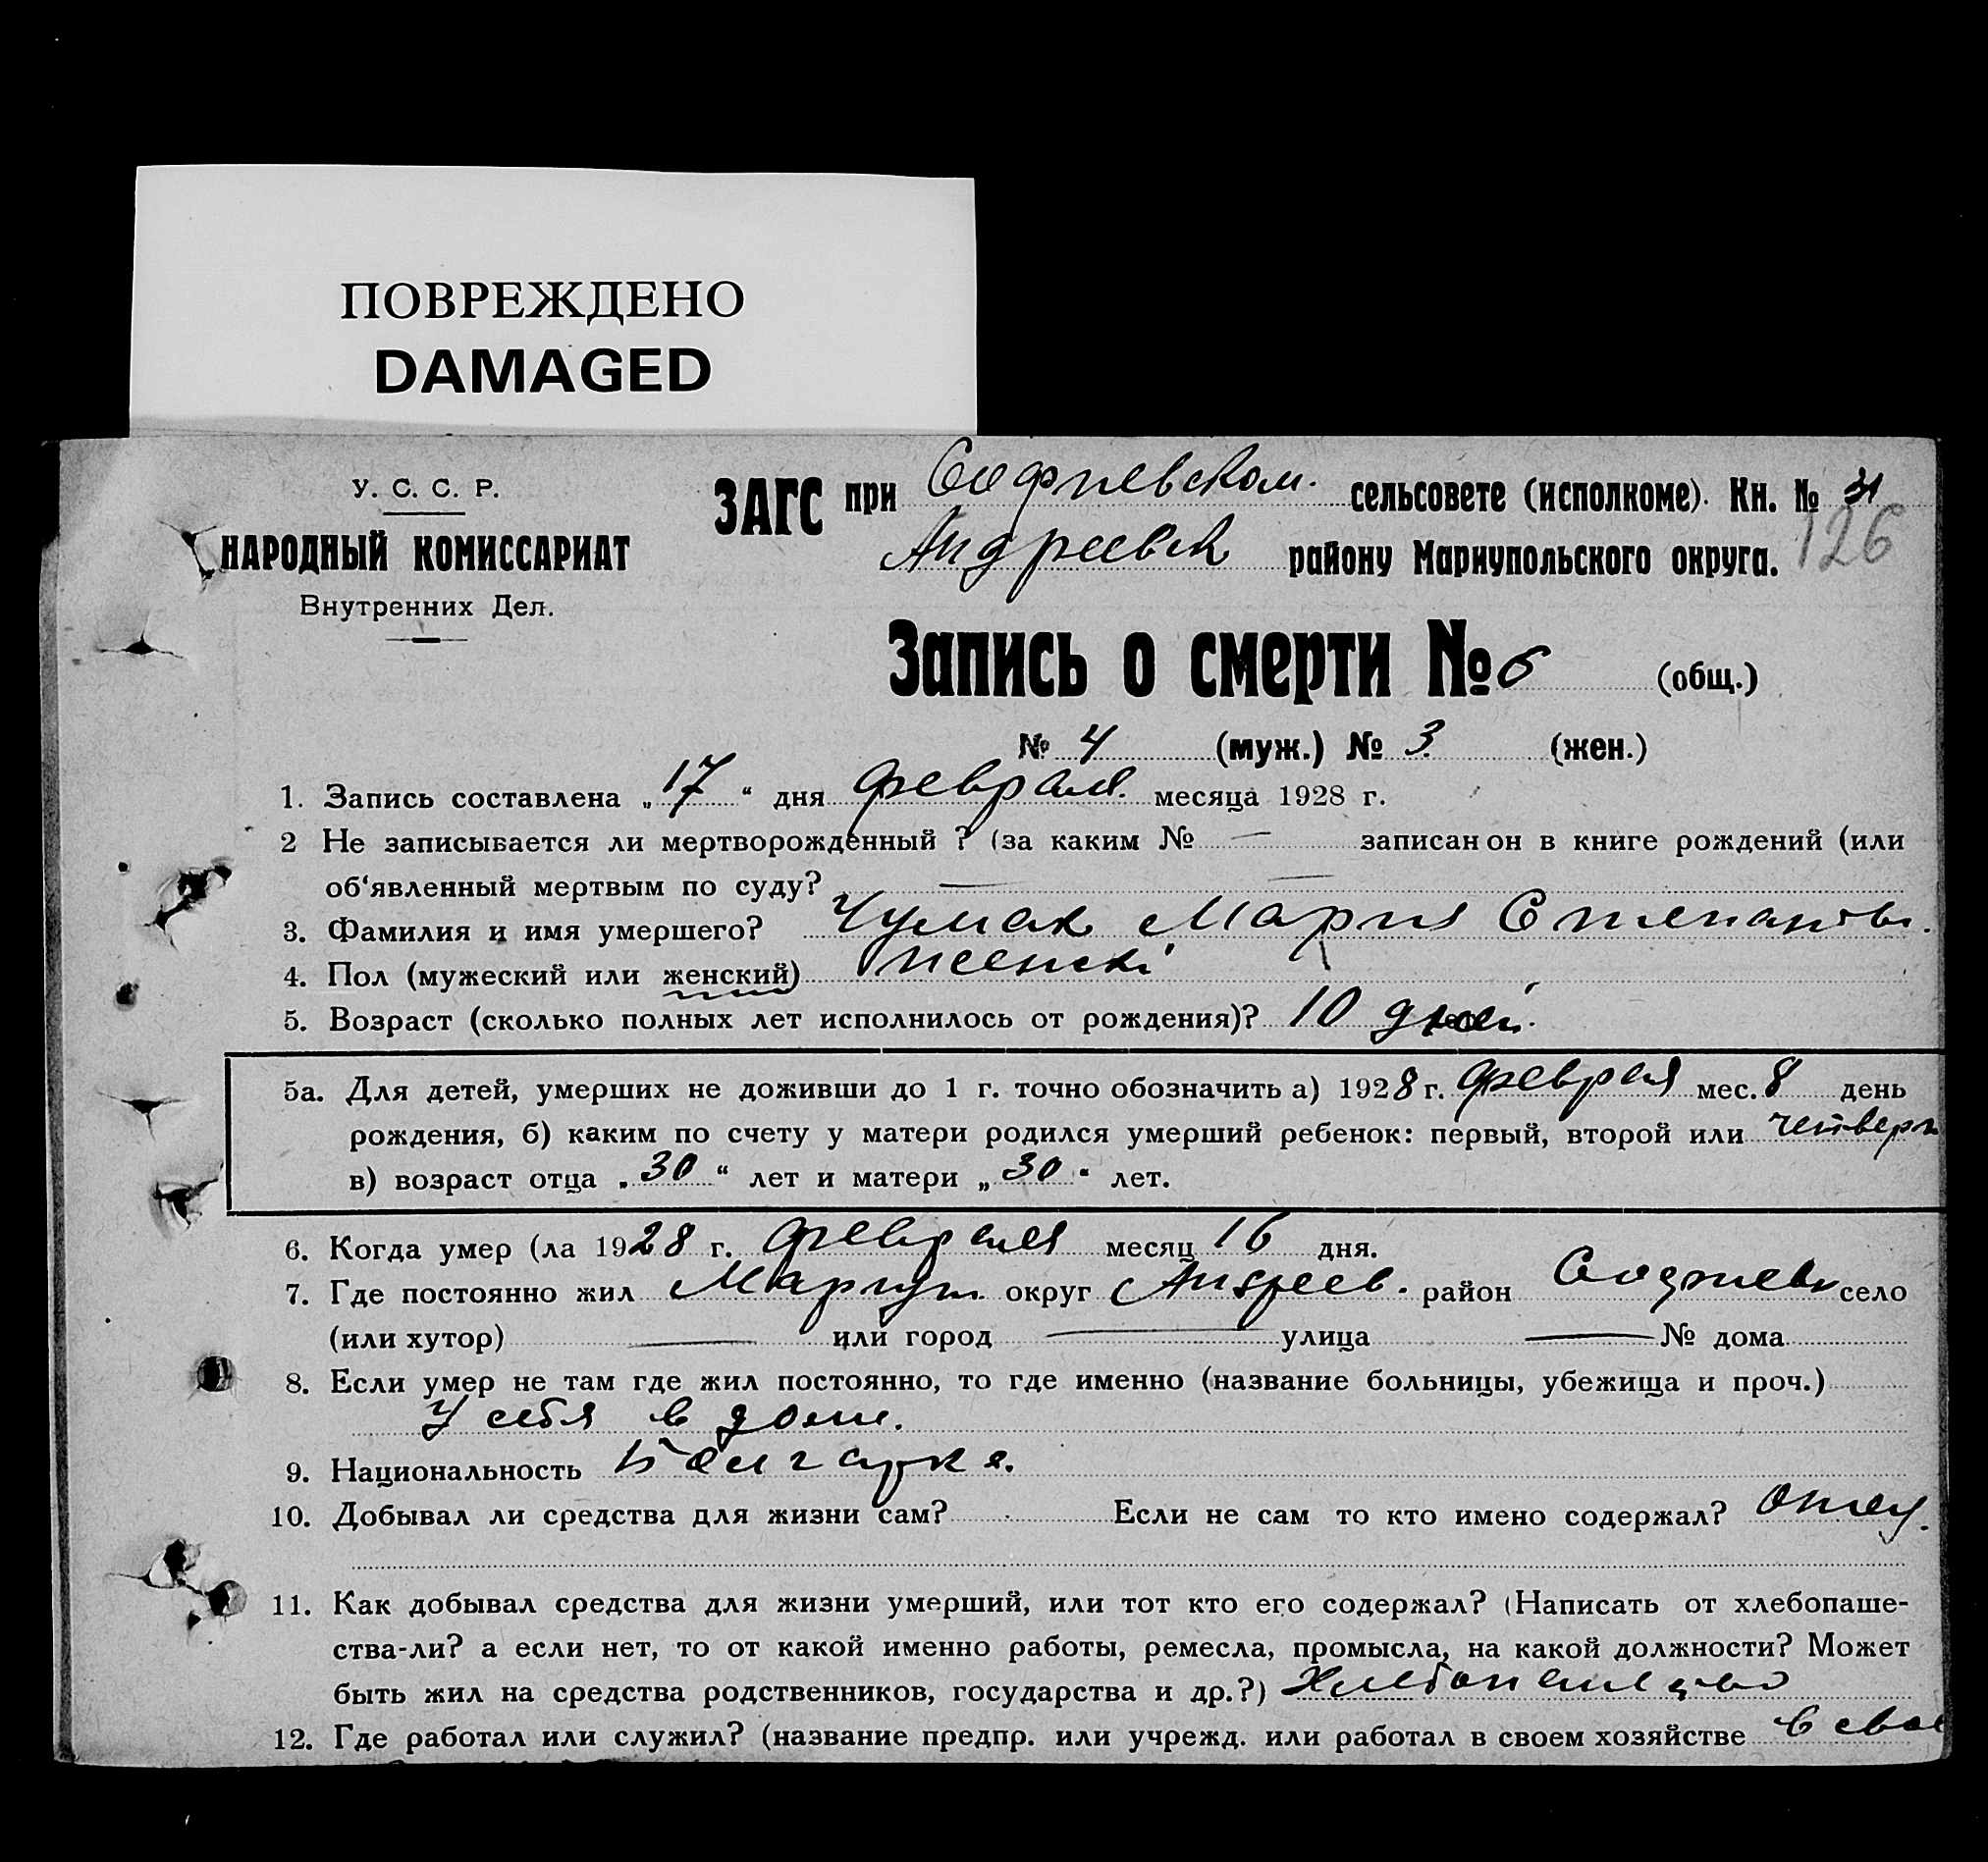 ПОВРЕЖДЕНО
DAMAGED
У. С. С. Р.
НАРОДНЫЙ КОМИССАРИАТ
Внутренних Дел.
ЗАГС при Софиевском. сельсовете (исполкоме). Кн. №
126
Андреевск району Мариупольского округа.
Запись о смерти № 6 (общ.)
№ 4 (муж.) № 3. (жен.)
1. Запись составлена „17“ дня февраля. месяца 1928 г.
2 Не записывается ли мертворожденный ? (за каким № — записан он в книге рождений (или
об‘явленный мертвым по суду? — —
3. Фамилия и имя умершего? Чумак Мария Степановн.
4. Пол (мужеский или женский) женскі
5. Возраст (сколько полных лет исполнилось от рождения)? 10 дней.
5а. Для детей, умерших не доживши до 1 г. точно обозначить а) 1928 г. февраля мес. 8 день
рождения, б) каким по счету у матери родился умерший ребенок: первый, второй или четверт
в) возраст отца „30“ лет и матери „30“ лет.
6. Когда умер (ла 1928 г. февраля месяц 16 дня.
7. Где постоянно жил Мариуп. округ Андреев. район Софиевк село
(или хутор) — или город — улица — № дома
8. Если умер не там где жил постоянно, то где именно (название больницы, убежища и проч.)
У себя в доме.
9. Национальность Болгарка.
10. Добывал ли средства для жизни сам? Если не сам то кто имено содержал? Отец.
11. Как добывал средства для жизни умерший, или тот кто его содержал? (Написать от хлебопаше-
ства-ли? а если нет, то от какой именно работы, ремесла, промысла, на какой должности? Может
быть жил на средства родственников, государства и др.?)
12. Где работал или служил? (название предпр. или учрежд. или работал в своем хозяйстве в свое